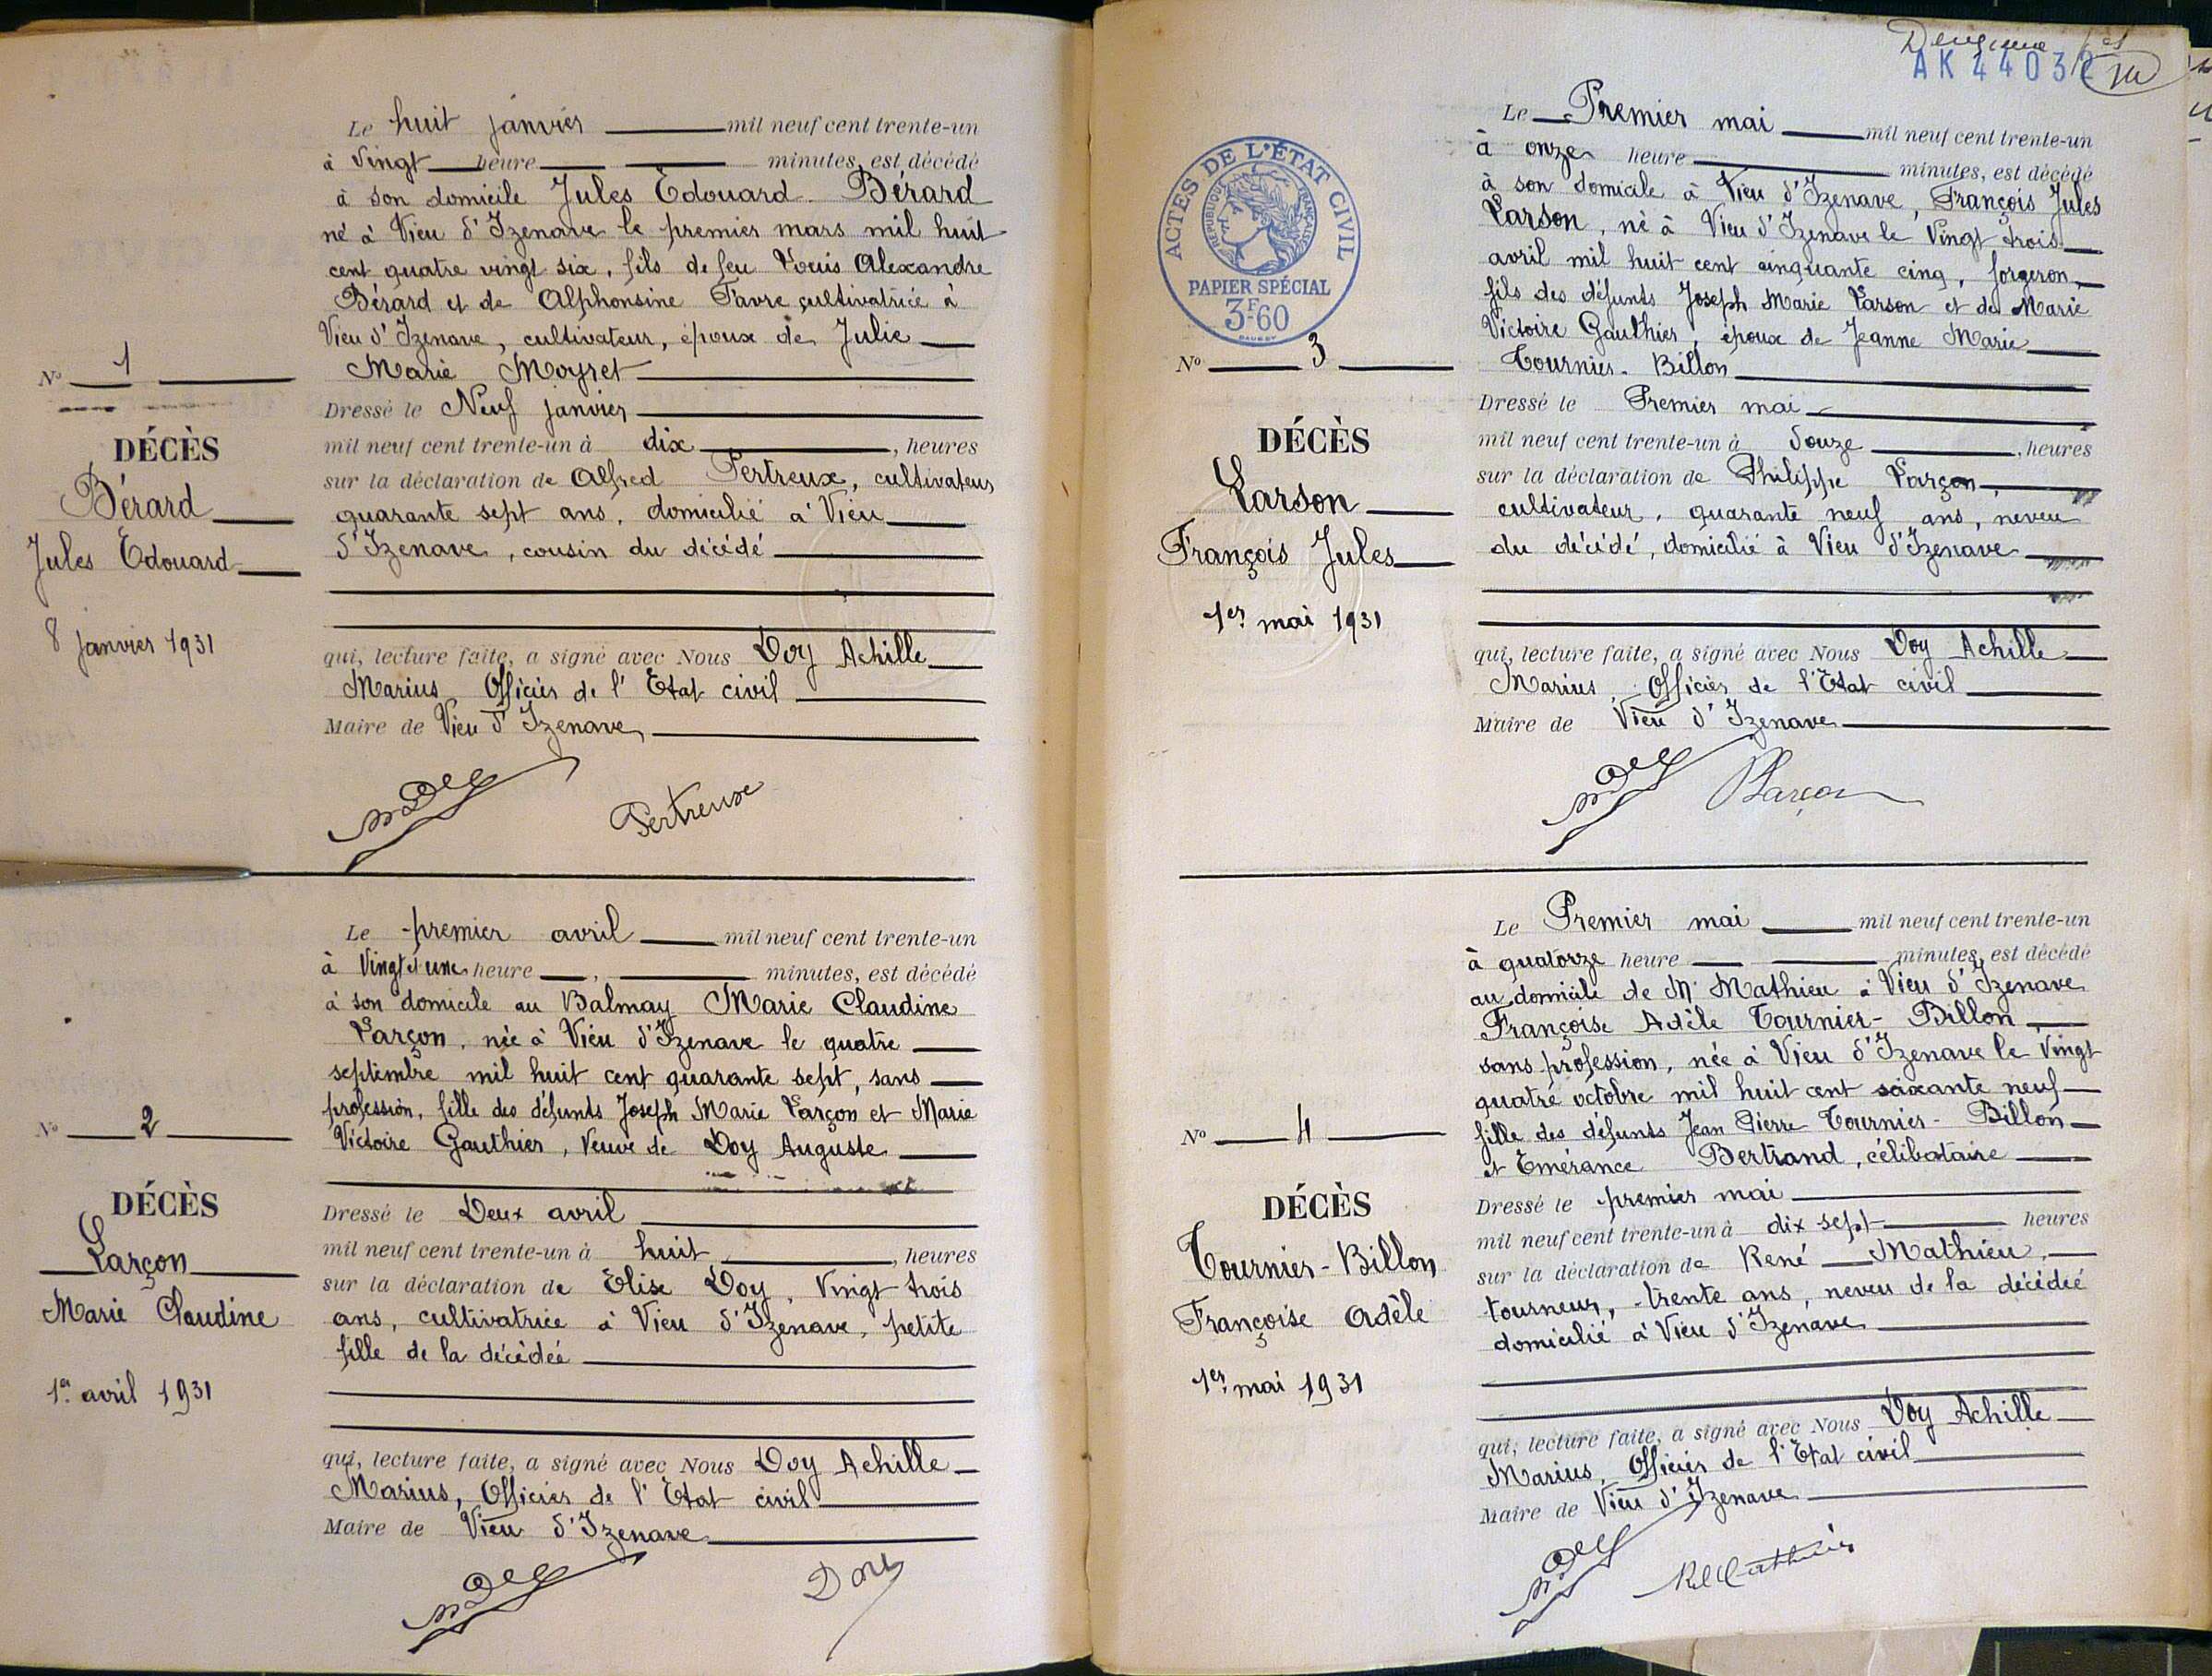 Le huit janvier mil neuf cent trente-un
à Vingt heure minutes, est décédé
à son domicile Jules Edouard Bérard
né à Vieu d'Izenave le premier mars mil huit
cent quatre vingt six, fils de feu Louis Alexandre
Bérard et de Alphonsine Favre cultivatrice à
Vieu d'Izenave, cultivateur, époux de Julie
Marie Moyret
N° 1
Dressé le Neuf janvier
DÉCÈS
mil neuf cent trente-un à dix, heures
Bérard
sur la déclaration de Alfred Pertreux, cultivateur
quarante sept ans, domicilié à Vieu
Jules Edouard
d'Izenave, cousin du décédé
8 janvier 1931
qui, lecture faite, a signé avec Nous Doy Achille
Marius, Officier de l'Etat civil
Maire de Vieu d'Izenave
Pertreux
Le premier avril mil neuf cent trente-un
à Vingt et une heure, minutes, est décédé
à son domicile au Balmay Marie Claudine
Larçon, née à Vieu d'Izenave le quatre
septembre mil huit cent quarante sept, sans
profession, fille des défunts Joseph Marie Larçon et Marie
N° 2
Victoire Gauthier, Veuve de Doy Auguste
DÉCÈS
Dressé le Deux avril
Larçon
mil neuf cent trente-un à huit, heures
sur la déclaration de Elise Doy, Vingt trois
Marie Claudine
ans, cultivatrice à Vieu d'Izenave, petite
fille de la décédée
1er avril 1931
qui, lecture faite, a signé avec Nous Doy Achille
Marius, Officier de l'Etat civil
Maire de Vieu d'Izenave
Doy
Deuxième
AK 44032
ACTES DE L'ÉTAT CIVIL
RÉPUBLIQUE FRANÇAISE
PAPIER SPÉCIAL
3F60
Le Premier mai mil neuf cent trente-un
à onze heure minutes, est décédé
à son domicile à Vieu d'Izenave, François Jules
Larson, né à Vieu d'Izenave le Vingt trois
avril mil huit cent cinquante cinq, forgeron,
fils des défunts Joseph Marie Larson et de Marie
Victoire Gauthier, époux de Jeanne Marie
N° 3
Tournier-Billon
DÉCÈS
Dressé le Premier mai
mil neuf cent trente-un à douze, heures
Larson
sur la déclaration de Philippe Larçon,
cultivateur, quarante neuf ans, neveu
François Jules
du décédé, domicilié à Vieu d'Izenave
1er mai 1931
qui, lecture faite, a signé avec Nous Doy Achille
Marius, Officier de l'Etat civil
Maire de Vieu d'Izenave
PLarçon
Le Premier mai mil neuf cent trente-un
à quatorze heure minutes, est décédé
au domicile de Mr Mathieu à Vieu d'Izenave
Françoise Adèle Tournier-Billon
sans profession, née à Vieu d'Izenave le Vingt
quatre octobre mil huit cent soixante neuf
fille des défunts Jean Pierre Tournier-Billon
N° 4
et Emérance Bertrand, célibataire
DÉCÈS
Dressé le premier mai
mil neuf cent trente-un à dix sept heures
Tournier-Billon
sur la déclaration de René Mathieu,
Françoise Adèle
tourneur, trente ans, neveu de la décédée
domicilié à Vieu d'Izenave
1er mai 1931
qui, lecture faite, a signé avec Nous Doy Achille
Marius, Officier de l'Etat civil
Maire de Vieu d'Izenave